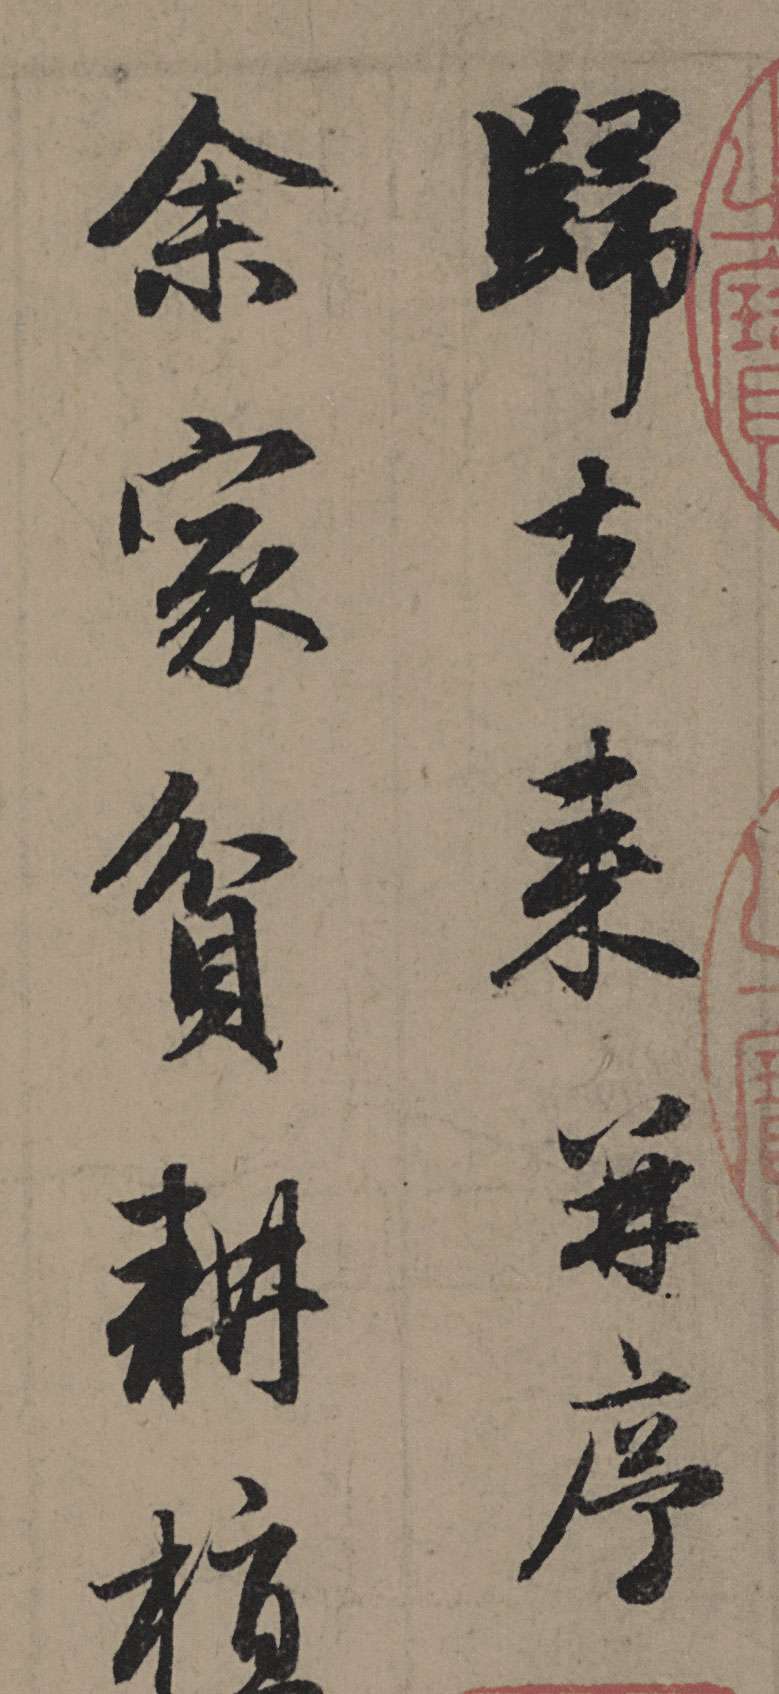 歸去來并序
余家貧耕植